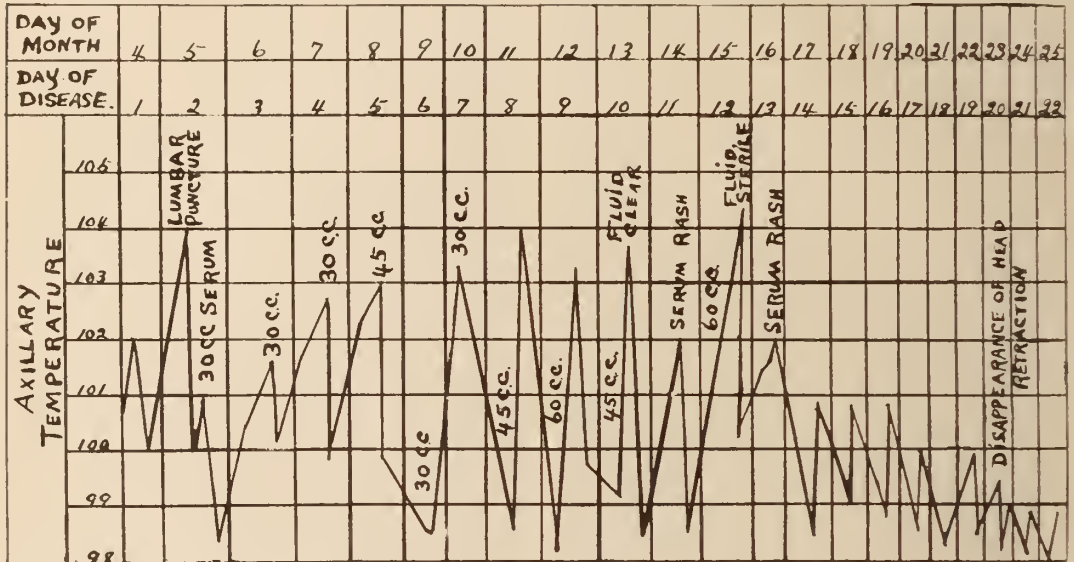 DAY OF
MONTH
4 5 6 7 8 9 10 11 12 13 14 15 16 17 18 19 20 21 22 23 24 25
DAY OF
DISEASE.
1 2 3 4 5 6 7 8 9 10 11 12 13 14 15 16 17 18 19 20 21 22
AXILLARY
TEMPERATURE
105
104
103
102
101
100
99
98
LUMBAR
PUNCTURE
30CC SERUM
30 C.C.
30 C.C
45 C.C
30 CC
30 C.C.
45 C.C.
60 C.C.
45 C.C.
FLUID
CLEAR
SERUM RASH
60 C.C.
FLUID,
STERILE
SERUM RASH
DISAPPEARANCE OF HEAD
RETRACTION